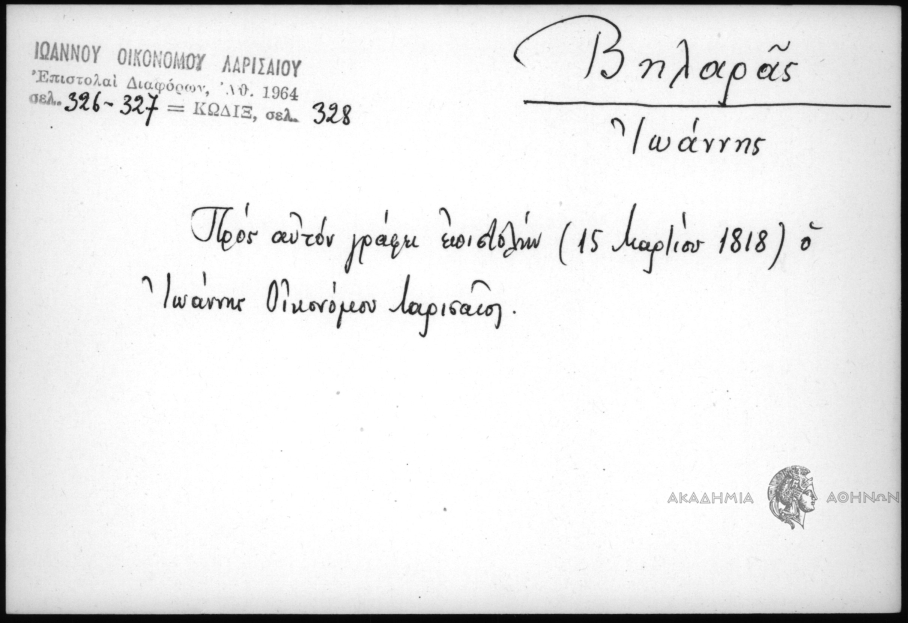 ΙΩΑΝΝΟΥ ΟΙΚΟΝΟΜΟΥ ΛΑΡΙΣΑΙΟΥ
Ἐπιστολαὶ Διαφόρων, Ἀθ. 1964
σελ. 326-327 = ΚΩΔΙΞ, σελ. 328
Βηλαρᾶς
Ἰωάννης
Πρός αὐτόν γράφει ἐπιστολήν (15 Μαρτίου 1818) ὁ
Ἰωάννης Οἰκονόμου Λαρισαῖος.
ΑΚΑΔΗΜΙΑ ΑΘΗΝΩΝ